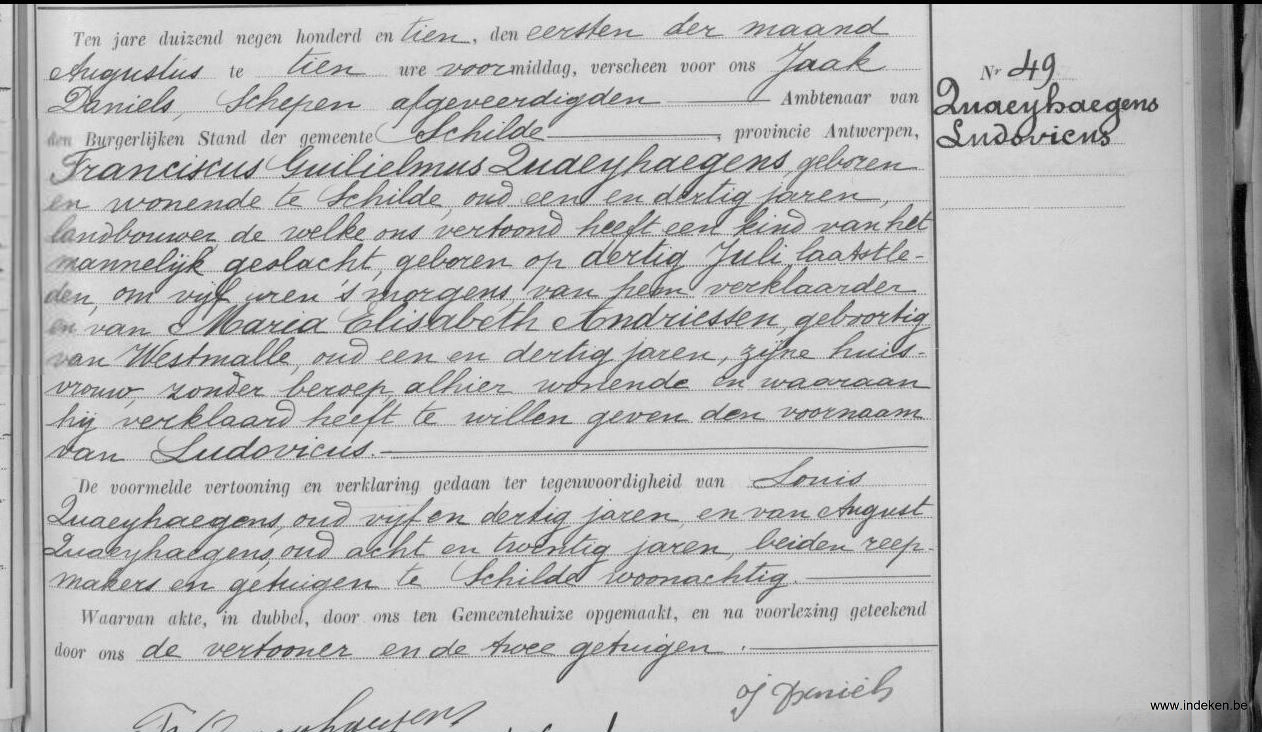 Ten jare duizend negen honderd en tien, den eersten der maand
Augustus te tien ure voormiddag, verscheen voor ons Jaak
Daniels, Schepen afgeveerdigden Ambtenaar van
den Burgerlijken Stand der gemeente Schilde, provincie Antwerpen,
Franciscus Guilielmus Quaeyhaegens, geboren
en wonende te Schilde, oud een en dertig jaren,
landbouwer de welke ons vertoond heeft een kind van het
mannelijk geslacht, geboren op dertig Juli laatstle-
den, om vijf uren 's morgens, van hem verklaarder
en van Maria Elisabeth Andriessen, geboortig
van Westmalle, oud een en dertig jaren, zijne huis-
vrouw, zonder beroep, alhier wonende en waaraan
hij verklaard heeft te willen geven den voornaam
van Ludovicus.
De voormelde vertooning en verklaring gedaan ter tegenwoordigheid van Louis
Quaeyhaegens, oud vijf en dertig jaren, en van August
Quaeyhaegens, oud acht en twintig jaren, beiden reep-
makers en getuigen te Schilde woonachtig.
Waarvan akte, in dubbel, door ons ten Gemeentehuize opgemaakt, en na voorlezing geteekend
door ons de vertooner en de twee getuigen.
J Daniels
Nr 49
Quaeyhaegens
Ludovicus
www.indeken.be